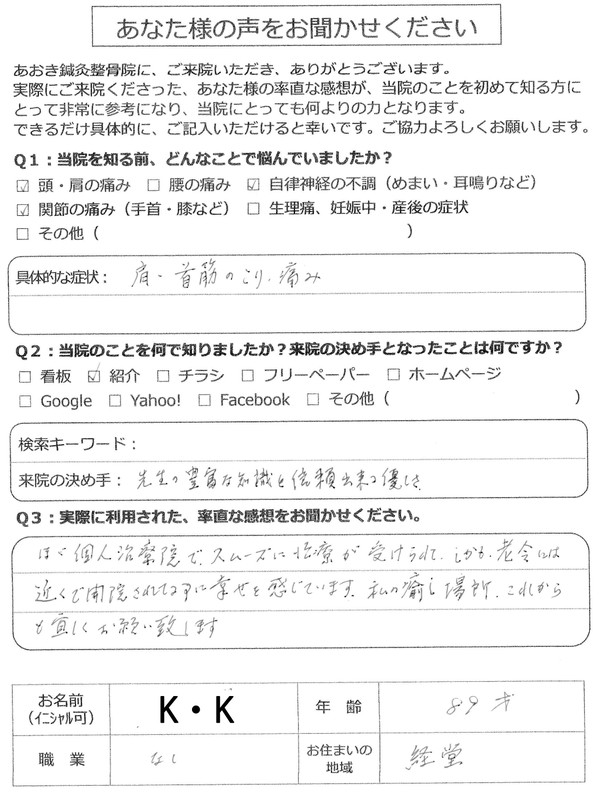 あなた様の声をお聞かせください
あおき鍼灸整骨院に、ご来院いただき、ありがとうございます。
実際にご来院くださった、あなた様の率直な感想が、当院のことを初めて知る方に
とって非常に参考になり、当院にとっても何よりの力となります。
できるだけ具体的に、ご記入いただけると幸いです。ご協力よろしくお願いします。
Q1：当院を知る前、どんなことで悩んでいましたか？
☑ 頭・肩の痛み □ 腰の痛み ☑ 自律神経の不調（めまい・耳鳴りなど）
☑ 関節の痛み（手首・膝など） □ 生理痛、妊娠中・産後の症状
□ その他（ ）
具体的な症状： 肩・首筋のこり、痛み
Q2：当院のことを何で知りましたか？来院の決め手となったことは何ですか？
□ 看板 ☑ 紹介 □ チラシ □ フリーペーパー □ ホームページ
□ Google □ Yahoo! □ Facebook □ その他（ ）
検索キーワード：
来院の決め手： 先生の豊富な知識と信頼出来る優しさ
Q3：実際に利用された、率直な感想をお聞かせください。
ほぼ個人治療院で、スムーズに治療が受けられて、しかも、老令には
近くで開院されてる事に幸せを感じています。私の癒し場所、これから
も宜しくお願い致します
お名前 K・K 年 齢 89才
（ｲﾆｼｬﾙ可）
職 業 なし お住まいの 経堂
地域